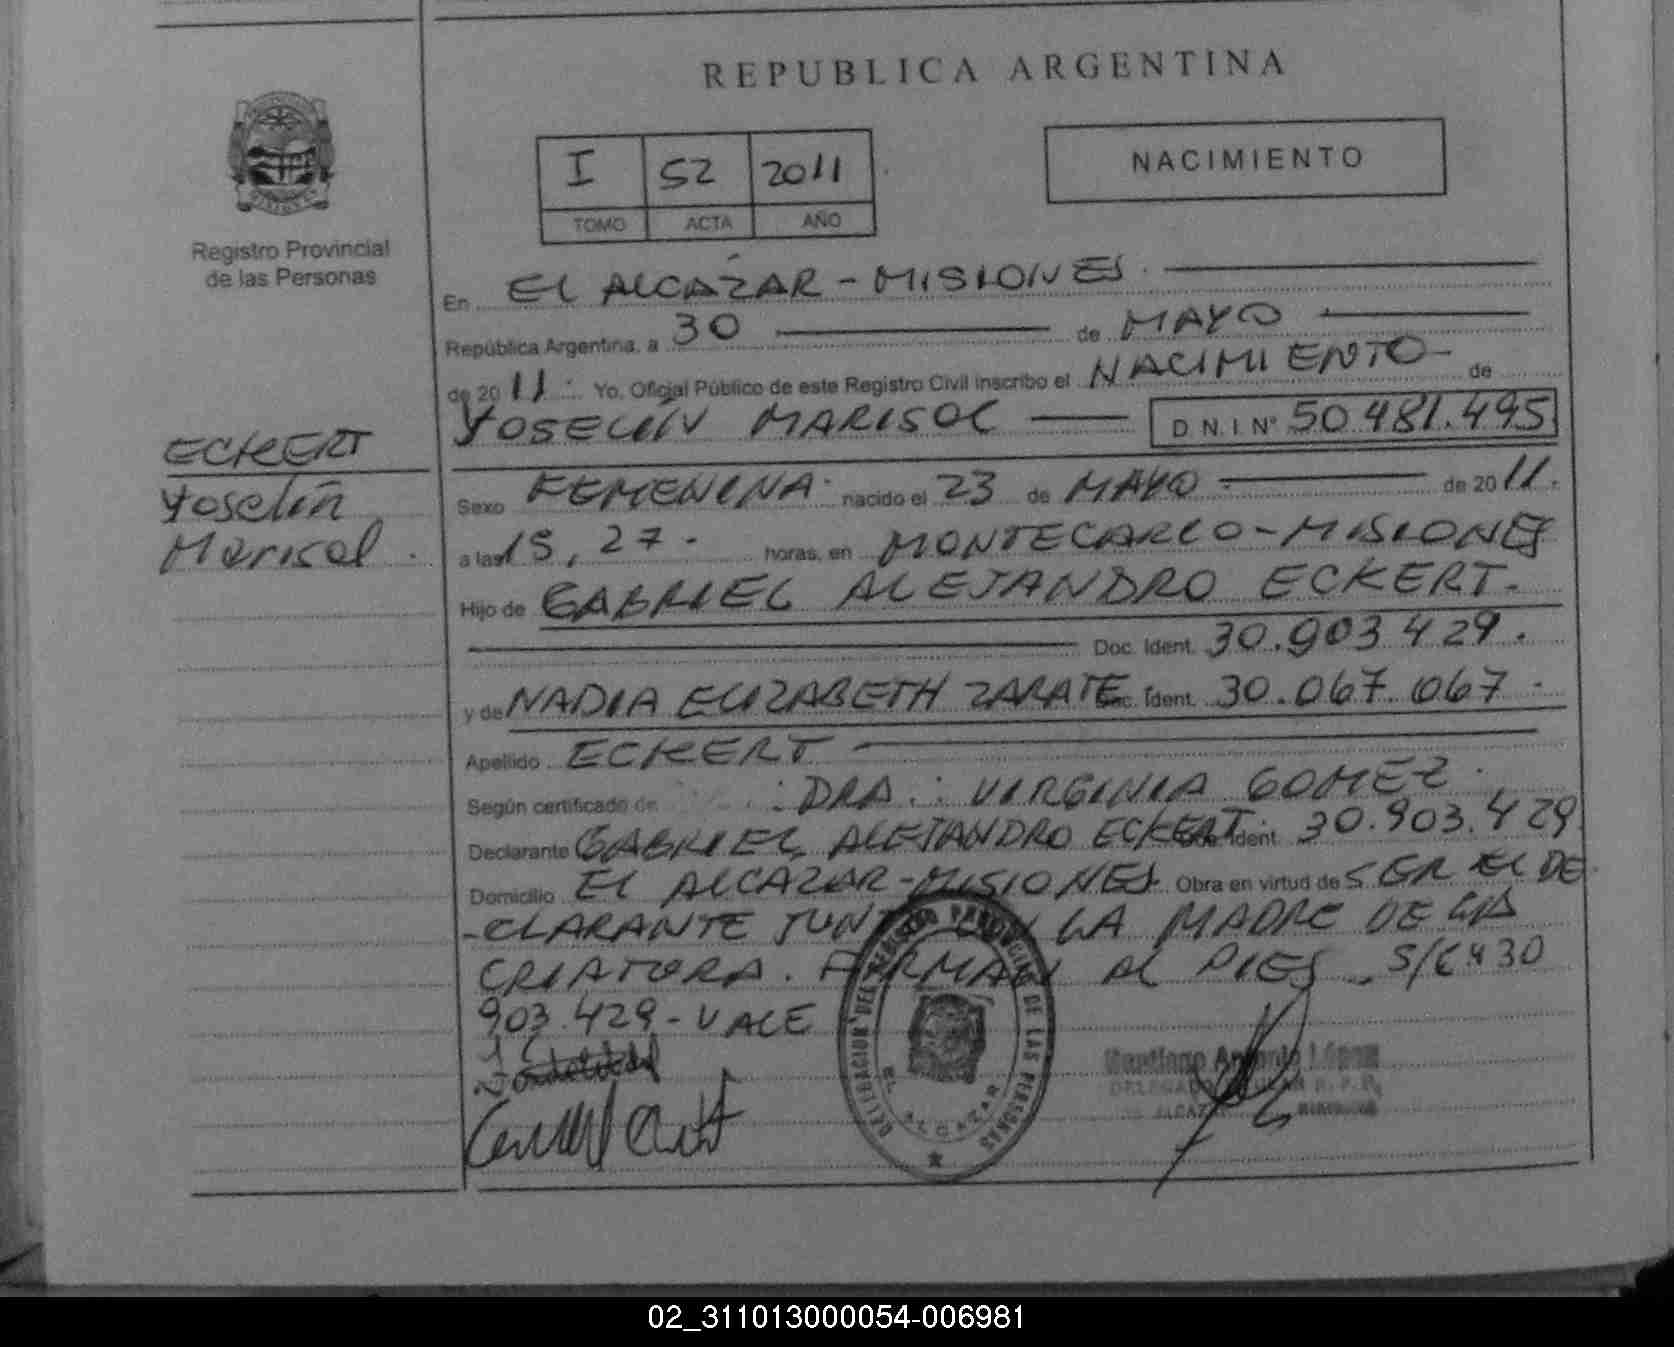 REPUBLICA ARGENTINA
I 52 2011
TOMO ACTA AÑO
NACIMIENTO
Registro Provincial
de las Personas
En EL ALCAZAR - MISIONES
República Argentina, a 30 de MAYO
de 2011. Yo, Oficial Público de este Registro Civil inscribo el NACIMIENTO de
YOSELÍN MARISOL D.N.I. Nº 50.481.495
ECKERT
Yoselín
Marisol.
Sexo FEMENINA. nacido el 23 de MAYO de 2011.
a las 15,27. horas, en MONTECARLO - MISIONES
Hijo de GABRIEL ALEJANDRO ECKERT.
Doc. Ident. 30.903.429.
y de NADIA ELIZABETH ZARATE Doc. Ident. 30.067.067.
Apellido ECKERT
Según certificado de : DRA.: VIRGINIA GOMEZ.
Declarante GABRIEL ALEJANDRO ECKERT. Doc. Ident. 30.903.429
Domicilio EL ALCAZAR - MISIONES Obra en virtud de SER EL DE
-CLARANTE JUNTO LA MADRE DE LA
CRIATURA. FIRMAN AL PIES. S/ 30
903.429 - VALE
DELEGACION DEL REGISTRO PROVINCIAL DE LAS PERSONAS
EL ALCAZAR
Santiago Antonio López
DELEGADO TITULAR R. P. P.
EL ALCAZAR MISIONES
02_311013000054-006981